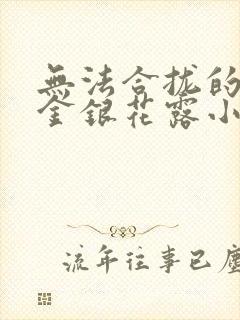 無法合拢的
金銀花露小
流年往事已塵